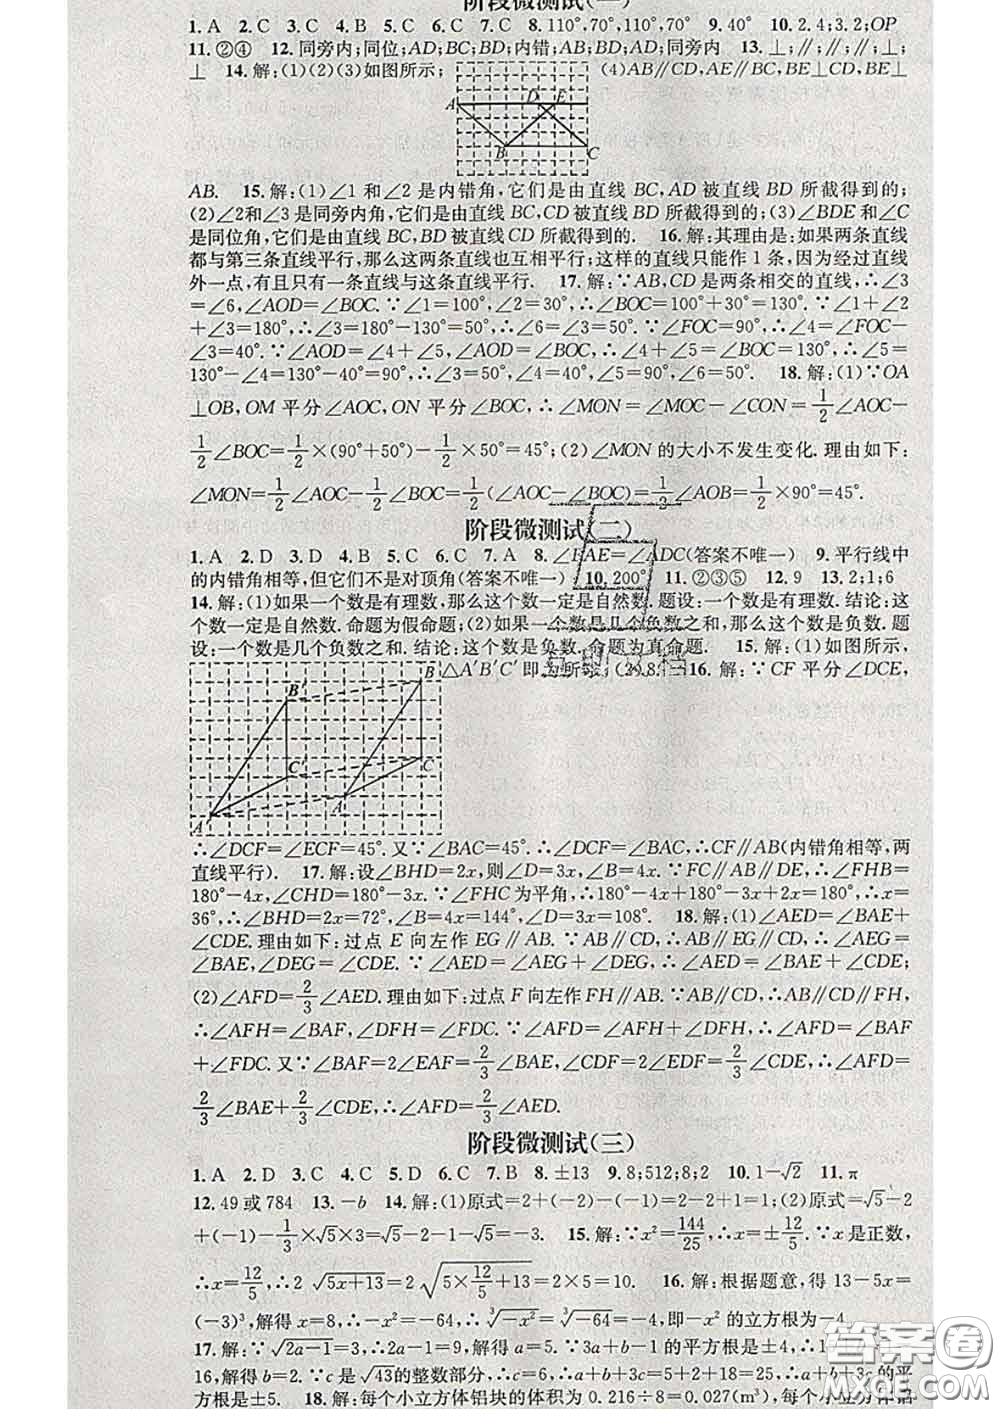 阶段微测试(一)
1. A 2. C 3. C 4. B 5. C 6. C 7. 70°,70°,110° 8. 110°,70°,110° 9. 40° 10. 2.4;3.2;OP
11. ②④ 12. 同旁内;同位;AD;BC;BD;内错;AB;BD;AD 13. ⊥;∥;∥;⊥;
⊥ 14. 解:(1)(2)(3)如图所示; (4)AB∥CD,AE∥BC,BE⊥CD,BE⊥
A D E
B C
AB. 15. 解:(1)∠1 和∠2 是内错角,它们是由直线 BC,AD 被直线 BD 所截得到的;
(2)∠2和∠3 是同旁内角,它们是由直线 BC,CD 被直线 BD 所截得到的;(3)∠BDE 和∠C
是同位角,它们是由直线 BC,BD 被直线 CD 所截得到的. 16. 解:其理由是:如果两条直线
都与第三条直线平行,那么这两条直线也互相平行;这样的直线只能作 1 条,因为经过直线
外一点,有且只有一条直线与这条直线平行. 17. 解:∵AB,CD 是两条相交的直线,∴∠3
=∠6,∠AOD=∠BOC.∵∠1=100°,∠2=30°,∴∠BOC=100°+30°=130°.∵∠1+∠2
+∠3=180°,∴∠3=180°-130°=50°,∴∠6=∠3=50°.∵∠FOC=90°,∴∠4=∠FOC-
∠3=40°.∵∠AOD=∠4+∠5,∠AOD=∠BOC,∴∠4+∠5=∠BOC=130°,∴∠5=
130°-∠4=130°-40°=90°,∴∠3=50°,∠4=40°,∠5=90°,∠6=50°. 18. 解:(1)∵OA
⊥OB,OM 平分∠AOC,ON 平分∠BOC,∴∠MON=∠MOC-∠CON=1/2∠AOC-
1/2∠BOC=1/2×(90°+50°)-1/2×50°=45°;(2)∠MON 的大小不发生变化.理由如下:
∠MON=1/2∠AOC-1/2∠BOC=1/2(∠AOC-∠BOC)=1/2∠AOB=1/2×90°=45°.
阶段微测试(二)
1. A 2. D 3. D 4. B 5. C 6. C 7. A 8. ∠FAE=∠ADC(答案不唯一) 9. 平行线中
的内错角相等,但它们不是对顶角(答案不唯一) 10. 200° 11. ②③⑤ 12. 9 13. 2;1;6
14. 解:(1)如果一个数是有理数,那么这个数一定是自然数.题设:一个数是有理数.结论:这
个数一定是自然数.命题为假命题;(2)如果一个数是几个负数之和,那么这个数是负数.题
设:一个数是几个负数之和.结论:这个数是负数.命题为真命题. 15. 解:(1)如图所示,
B △A′B′C′即为所求; 16. 解:∵CF 平分∠DCE,
B′
C′ C
A′ A
∴∠DCF=∠ECF=45°.又∵∠BAC=45°.∴∠DCF=∠BAC,∴CF∥AB(内错角相等,两
直线平行). 17. 解:设∠BHD=2x,则∠D=3x,∠B=4x.∵FC∥AB∥DE,∴∠FHB=
180°-4x,∠CHD=180°-3x.∵∠FHC为平角,∴180°-4x+180°-3x+2x=180°,∴x=
36°,∴∠BHD=2x=72°,∠B=4x=144°,∠D=3x=108°. 18. 解:(1)∠AED=∠BAE+
∠CDE.理由如下:过点 E 向左作 EG∥AB.∵AB∥CD,∴AB∥EG∥CD,∴∠AEG=
∠BAE,∠DEG=∠CDE.∵∠AED=∠AEG+∠DEG,∴∠AED=∠BAE+∠CDE;
(2)∠AFD=2/3∠AED.理由如下:过点 F 向左作 FH∥AB.∵AB∥CD,∴AB∥CD∥FH,
∴∠AFH=∠BAF,∠DFH=∠FDC.∵∠AFD=∠AFH+∠DFH,∴∠AFD=∠BAF
+∠FDC.又∵∠BAF=2∠EAF=2/3∠BAE,∠CDF=2∠EDF=2/3∠CDE,∴∠AFD=
2/3∠BAE+2/3∠CDE,∴∠AFD=2/3∠AED.
阶段微测试(三)
1. A 2. D 3. C 4. C 5. D 6. C 7. B 8. ±13 9. 8;512;8;2 10. 1-√2 11. π
12. 49 或 784 13. -b 14. 解:(1)原式=2+(-2)-(-1)=2-2+1=1;(2)原式=√5-2
+(-1)-1/3×√5×3=√5-1-√5=-3. 15. 解:∵x²=144/25,∴x=±12/5.∵x 是正数,
∴x=12/5,∴2√5x+13=2√5×12/5+13=2×5=10. 16. 解:根据题意,得 13-5x=
(-3)³,解得 x=8,∴-x²=-64,∴³√-x²=³√-64=-4,即-x² 的立方根为-4.
17. 解:∵√2a-1=3,∴2a-1=9,解得 a=5.∵3a+b-1 的平方根是±4,∴3a+b-1=
16,解得 b=2.∵c 是√43的整数部分,∴c=6,∴a+b+3c=25,∴a+b+3c 的平
方根是±5. 18. 解:每个小立方体铝块的体积为 0.216÷8=0.027(m³),每个小立方体铝
答案圈